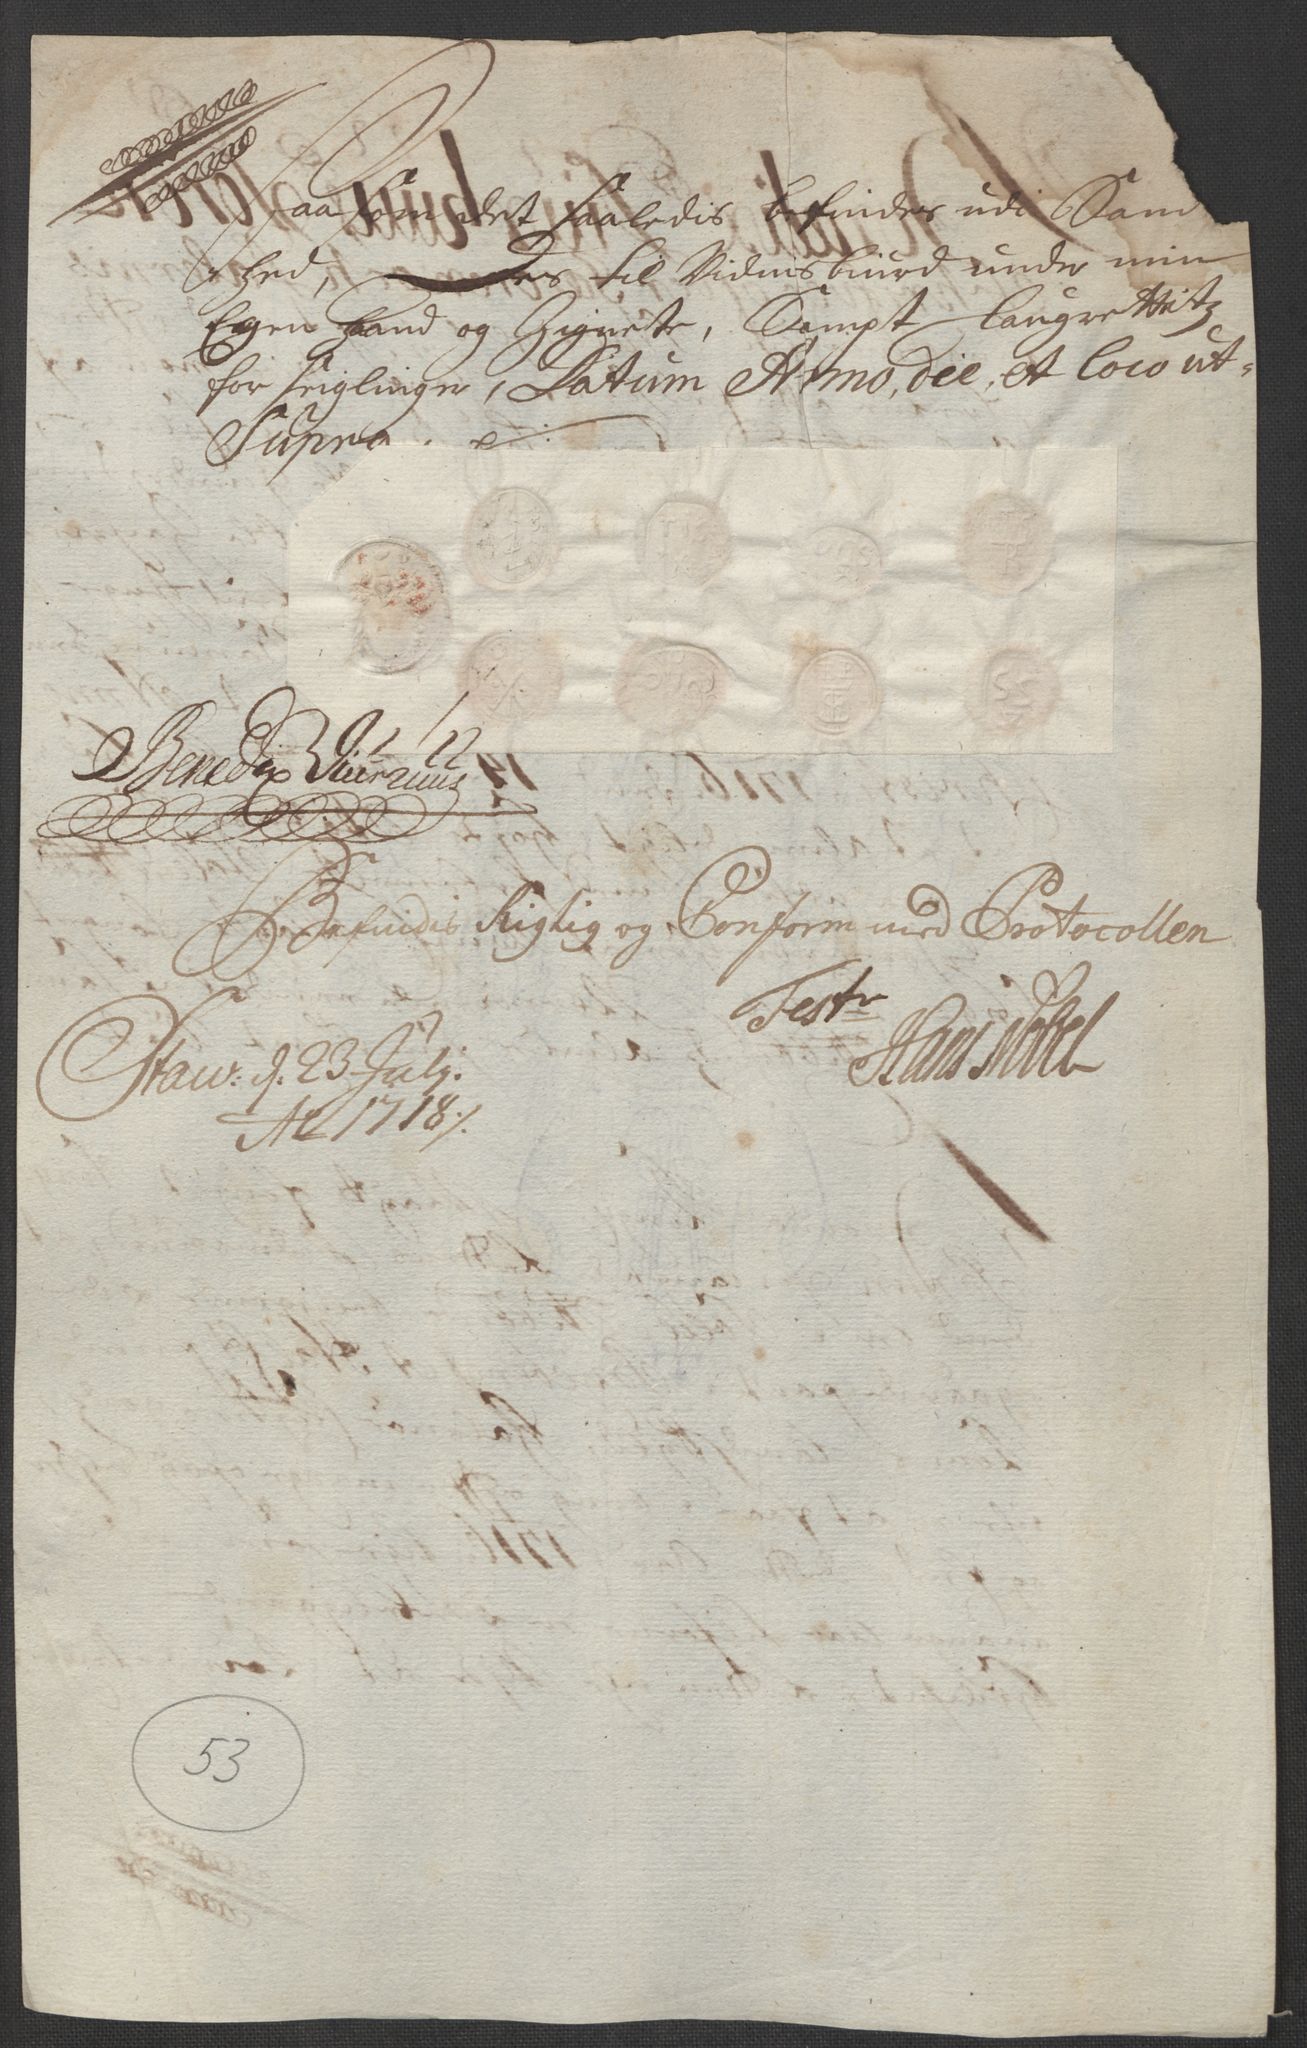 Saasom det saaledis befindes udi Sand
hed, til Vidnisbiurd under min
Egen Haand og Zignete, Sampt Laugrettitz
for seiglinger, Datum Anno, die, et loco ut-
Supra.
Benedix
Befindis Rigtig og Conform med Protocollen
Teste
Hans Nobel
Staw: d. 23 Julj.
Ao 1718
53